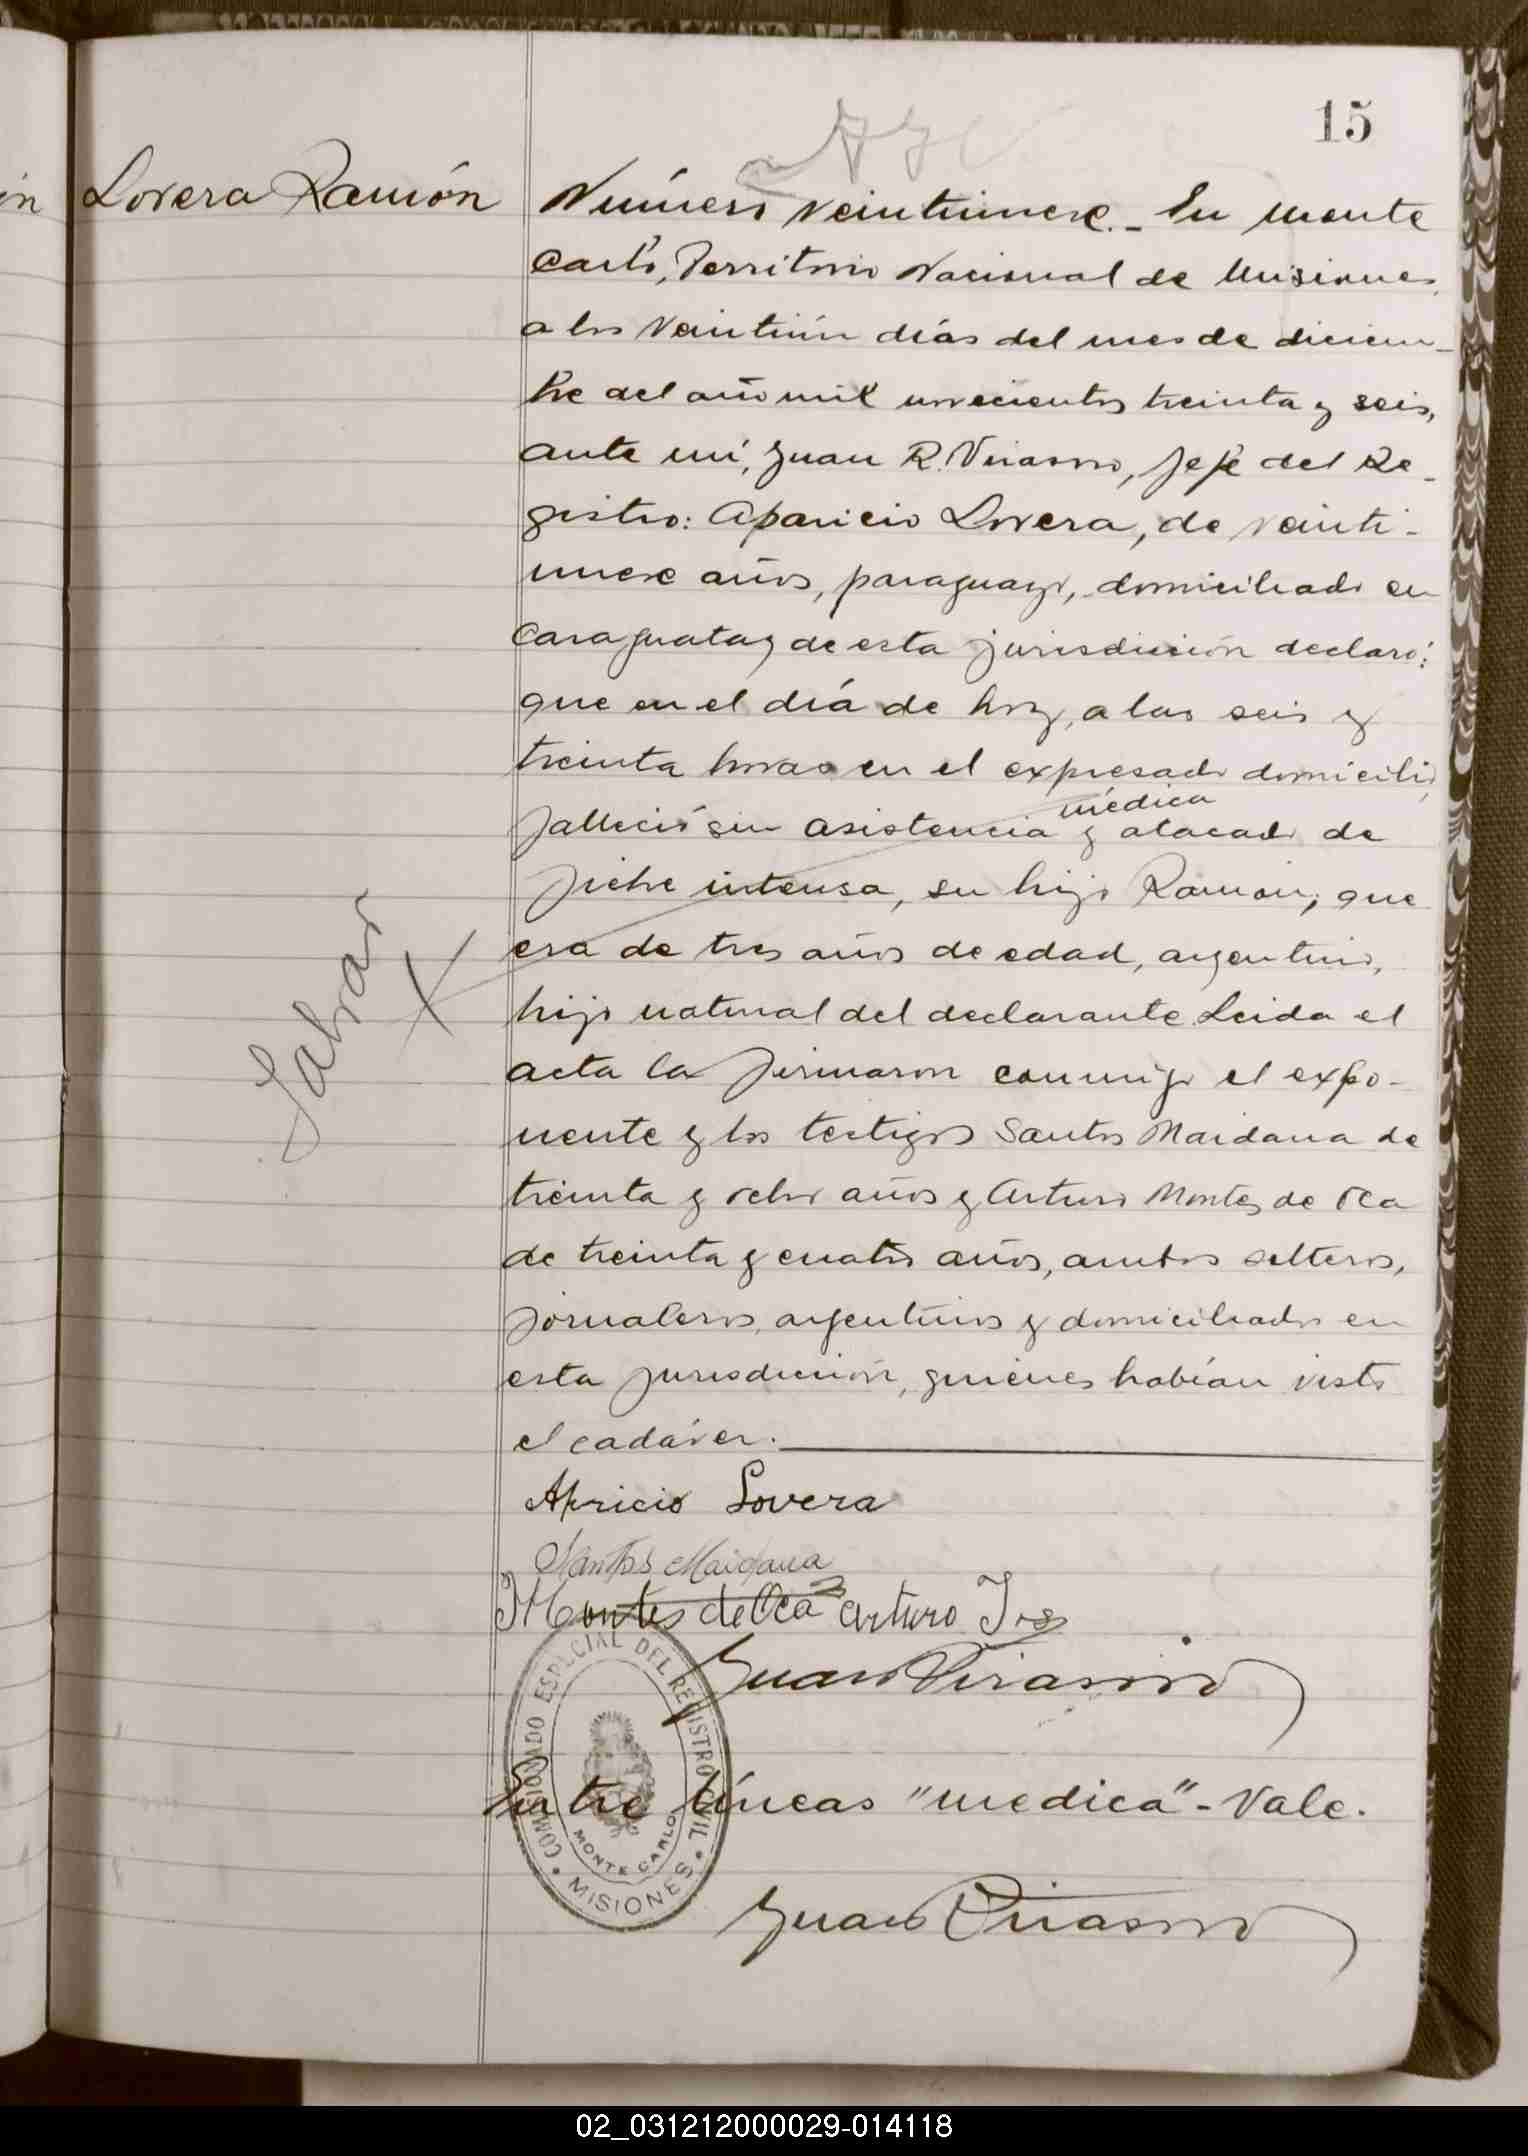 15
Lovera Ramón
Número veintinueve.- En Monte
Carlo, Territorio Nacional de Misiones,
a los veintiún días del mes de diciem-
bre del año mil novecientos treinta y seis,
ante mí, Juan R. Virasoro, Jefe del Re-
gistro: Aparicio Lovera, de veinti-
nueve años, paraguayo, domiciliado en
Caraguatay de esta jurisdicción declaró:
que en el día de hoy, a las seis y
treinta horas en el expresado domicilio,
médica
falleció sin asistencia y atacado de
fiebre intensa, su hijo Ramón, que
era de tres años de edad, argentino,
hijo natural del declarante. Leida el
acta la firmaron conmigo el expo-
nente y los testigos Santos Maidana de
treinta y ocho años y Arturo Montes de Oca
de treinta y cuatro años, ambos solteros,
jornaleros, argentinos y domiciliados en
esta jurisdicción, quienes habían visto
el cadáver.
Salvar
X
Apricio Lovera
Santos Maidana
Montes de Oca Arturo
Juan Virasoro
COMISIONADO ESPECIAL DEL REGISTRO CIVIL
MONTE CARLO
• MISIONES •
Entre líneas "medica" - Vale.
Juan Virasoro
02_031212000029-014118